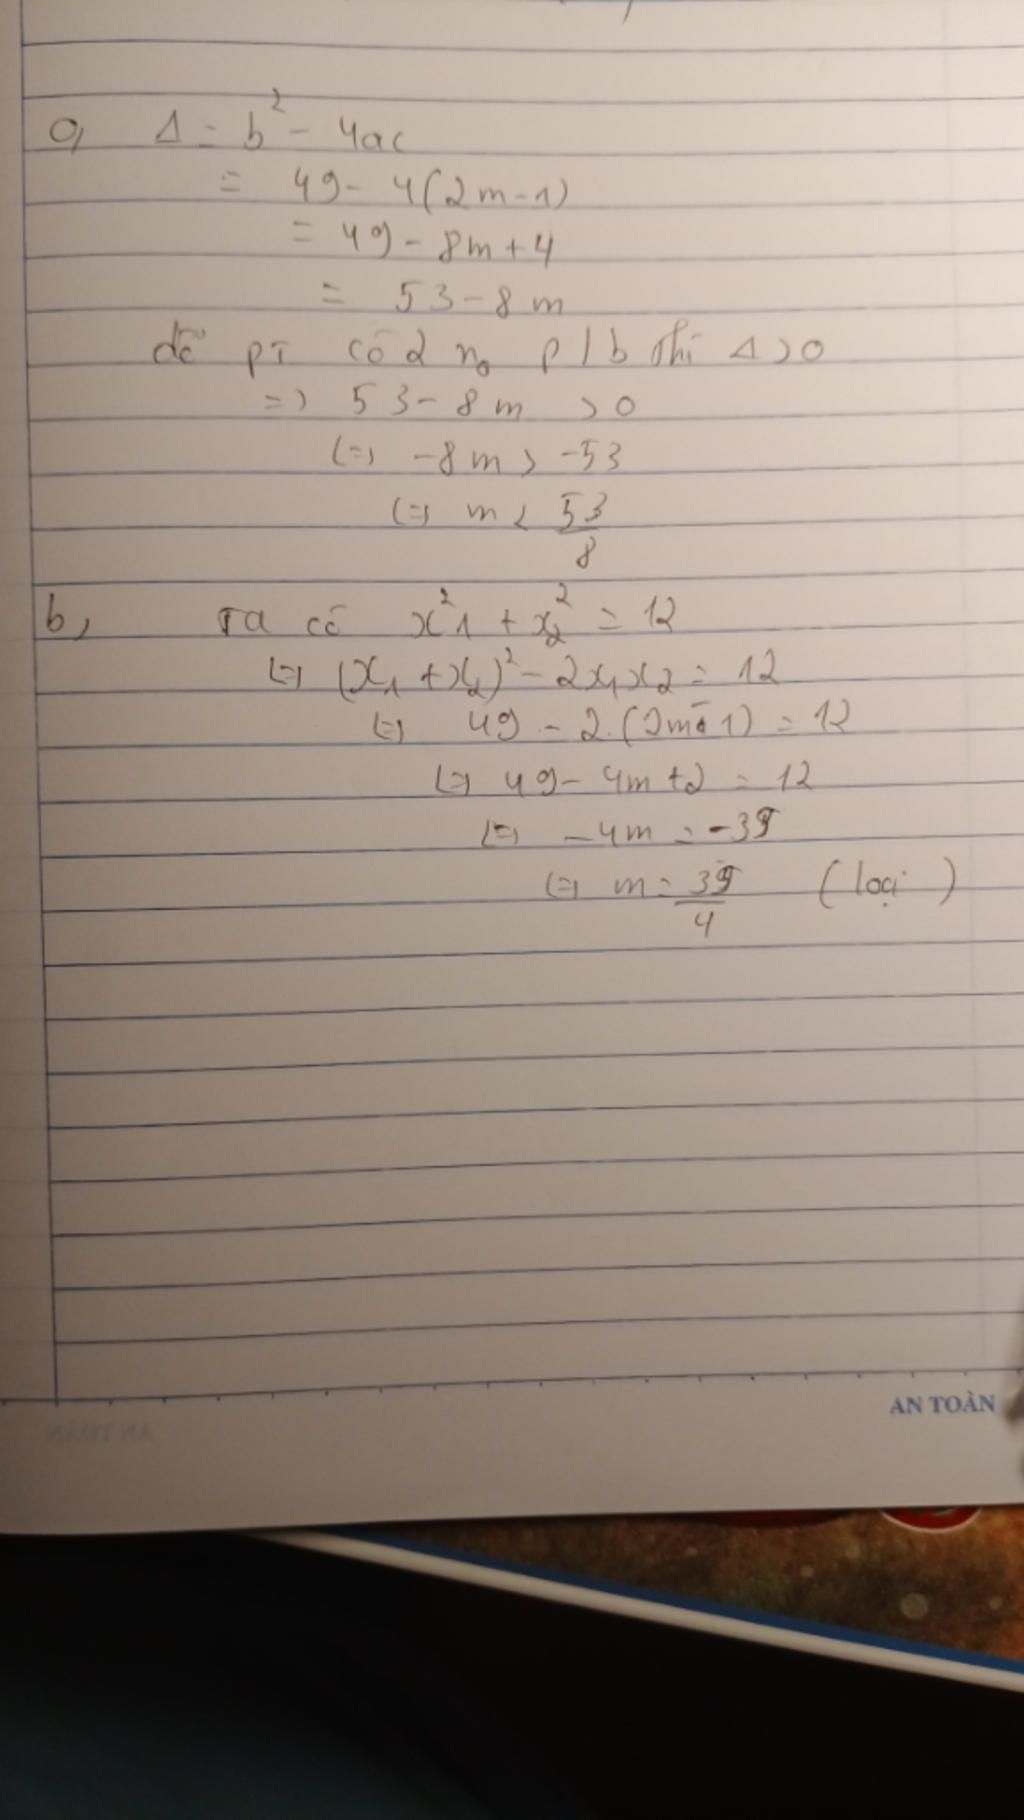 a, Δ = b² - 4ac
= 49 - 4(2m - 1)
= 49 - 8m + 4
= 53 - 8m
để pt có 2 n₀ p/b thì Δ > 0
=> 53 - 8m > 0
<=> -8m > -53
<=> m < 53/8
b, Ta có x²1 + x₂² = 12
<=> (x₁ + x₂)² - 2x₁x₂ = 12
<=> 49 - 2.(2m - 1) = 12
<=> 49 - 4m + 2 = 12
<=> -4m = -39
<=> m = 39/4 (loại)
AN TOÀN